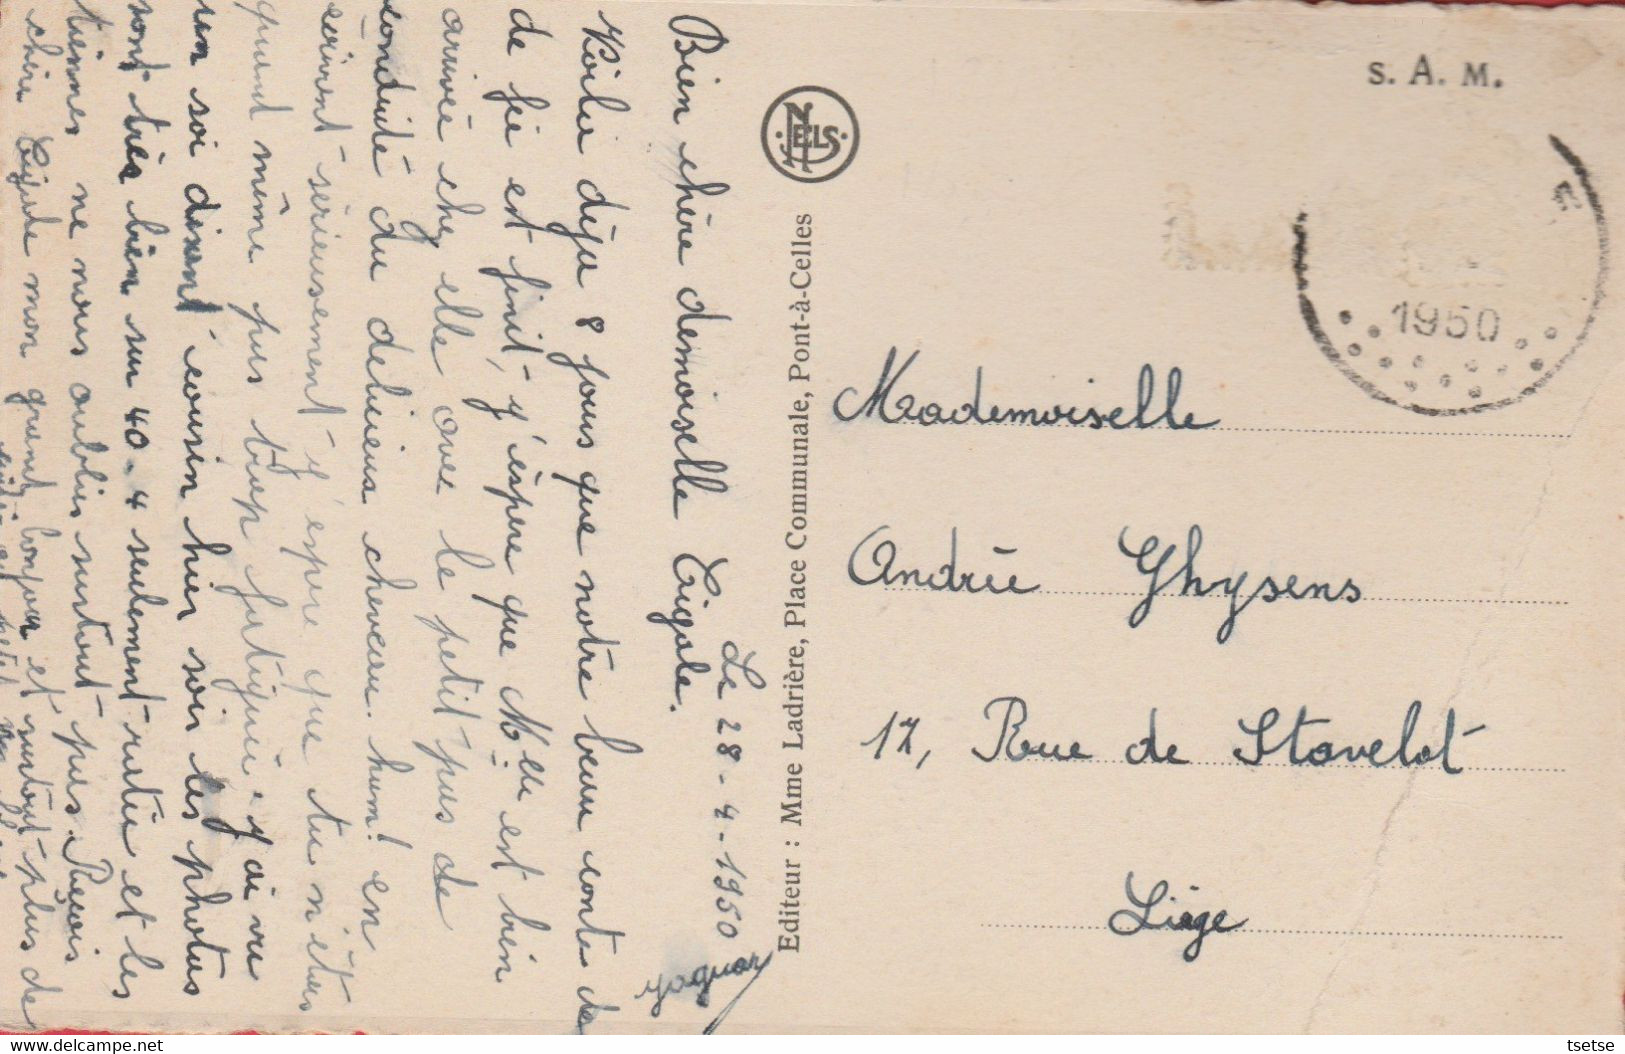 Le 28-4-1950
Bien chère demoiselle Cigale.
Voila déja 8 jours que notre beau conte de
de fée est finit, j'éspère que Melle est bien
arrivée chez elle avec le petit pus de
conduite du delicieux cheveau. hum! en
écrivant sérieusement j'éspère que tu n'étais
quand même pas trop fatiguée. j'ai vu
un soi disant cousin hier soir les photos
sont très bien sur 40. 4 seulement ratée et les
tiennes ne nous oublies surtout pas. Reçois
chère Cigale mon grand bonjour et surtout plus de
S. A. M.
NELS
1950
Editeur : Mme Ladrière, Place Communale, Pont-à-Celles
Mademoiselle
Andrée Ghysens
17, Rue de Stavelot
Liège
tsetse